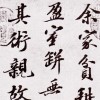 余家貧耕
盈室缾無
其術親故